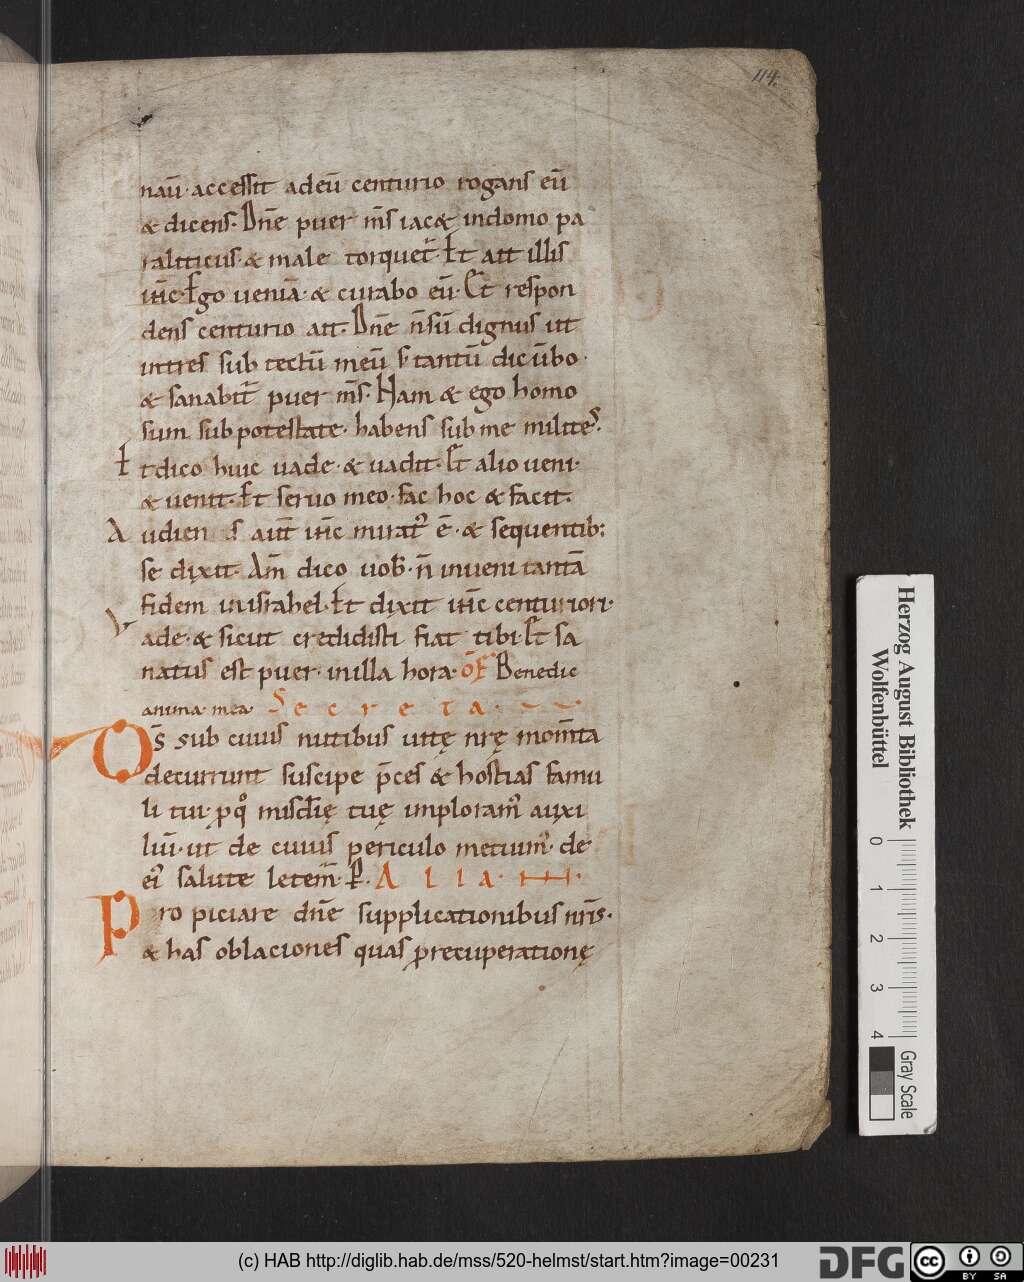 114.
naū· accessit ad eū centurio rogans eū
& dicens· Dn̄e puer m̄s iac& in domo pa
raliticus· & male torquet᷑· Et ait illis
ih̄c· Ego veniā· & curabo eū· Et respon
dens centurio ait· Dn̄e n̄ sū dignus ut
intres sub tectū meū s; tantū dic ūbo·
& sanabit᷑ puer m̄s· Nam & ego homo
sum sub potestate· habens sub me milites·
Et dico huic uade· & uadit· Et alio ueni·
& uenit· Et seruo meo· fac hoc & facit·
Audiens aut̄ ih̄c mirat᷑ ē· & sequentib;
se dixit· Am̄ dico uob· n̄ inueni tantā
fidem in israhel· Et dixit ih̄c centurioni·
Vade· & sicut credidisti fiat tibi· Et sa
natus est puer· in illa hora· of̄ Benedic
anima mea· Secreta·
Ds̄ sub cuius nutibus uitę nrę mom̄ta
decurrunt suscipe p̄ces & hostias famu
li tui· pq°  misc̄dię tuę imploram᷒ auxi
liū· ut de cuius periculo metuim᷒· de
ei᷒ salute letem᷒· P· Alia·
Propiciare dn̄e supplicationibus nr̄is·
& has oblaciones quas p recuperationę
Herzog August Bibliothek
Wolfenbüttel
0 1 2 3 4
Gray Scale
(c) HAB http://diglib.hab.de/mss/520-helmst/start.htm?image=00231
DFG
cc BY SA